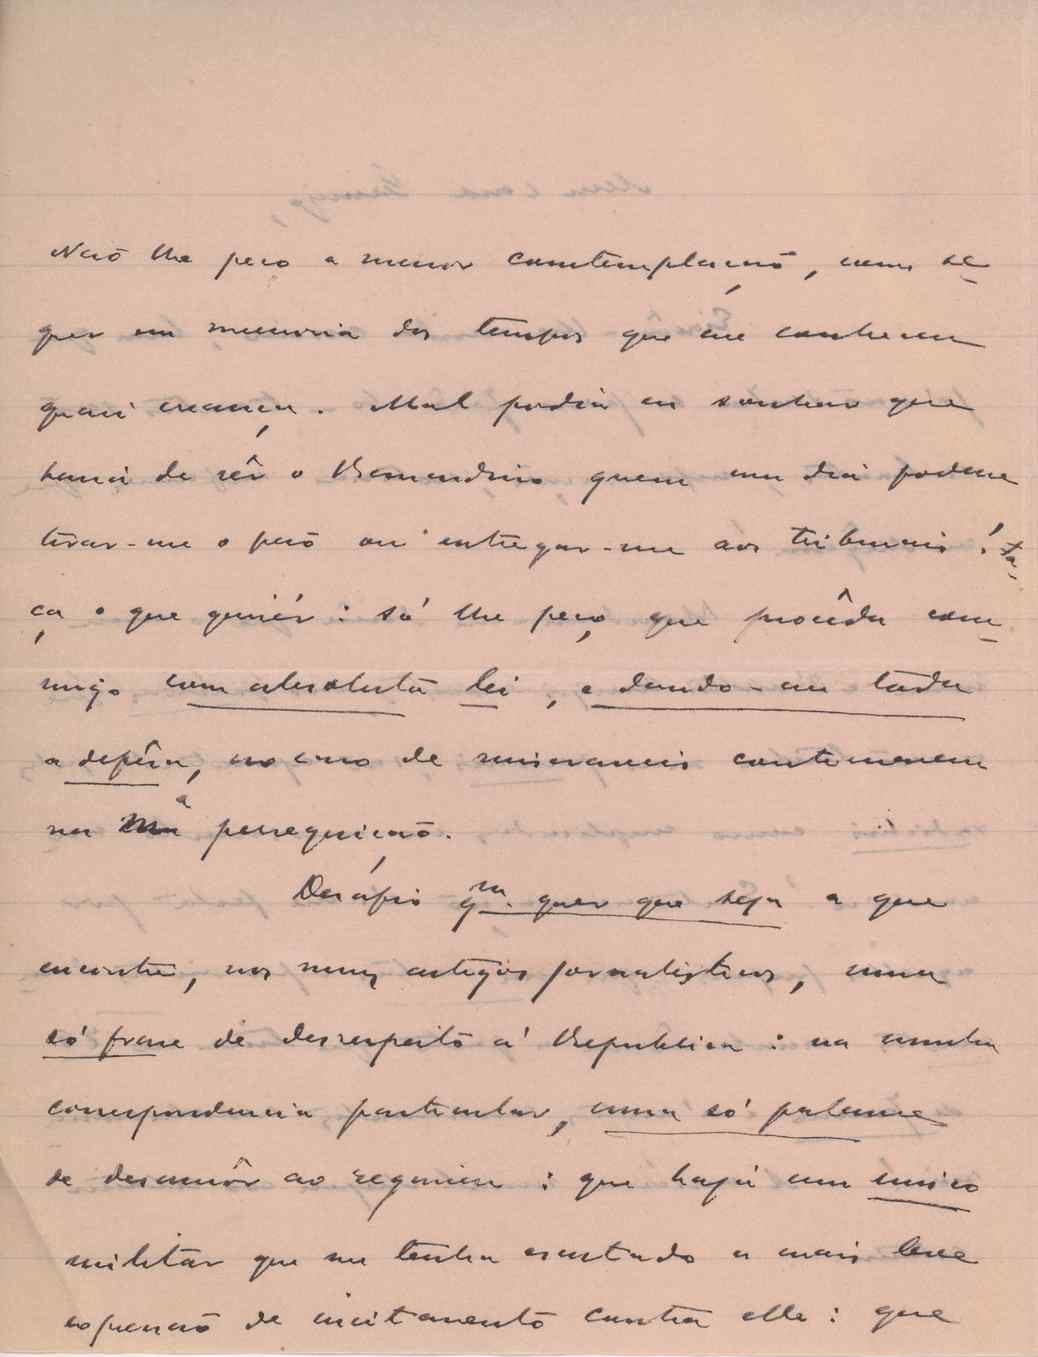 Não lhe peço a menor comtemplação, nem se-
quer em memoria dos tempos que me conheceu
quasi creança. Mal podia eu sonhar que
havia de sêr o Bernardino quem um dia podesse
tirar-me o pão ou entregar-me aos tribunais! Fa-
ça o que quizér: só lhe peço que procêda com-
migo com absoluta lei, e dando-me toda
a defêsa, no caso de miseraveis continuarem
na a perseguição.
Desáfio qm. quer que seja a que
encontre, nos meus artigos jornalisticos, uma
só frase de desrespeito á Republica: na minha
correspondencia particular, uma só palavra
de desamôr ao regimen: que haja um unico
militar que me tenha escutado a mais leve
expressão de incitamento contra elle: que